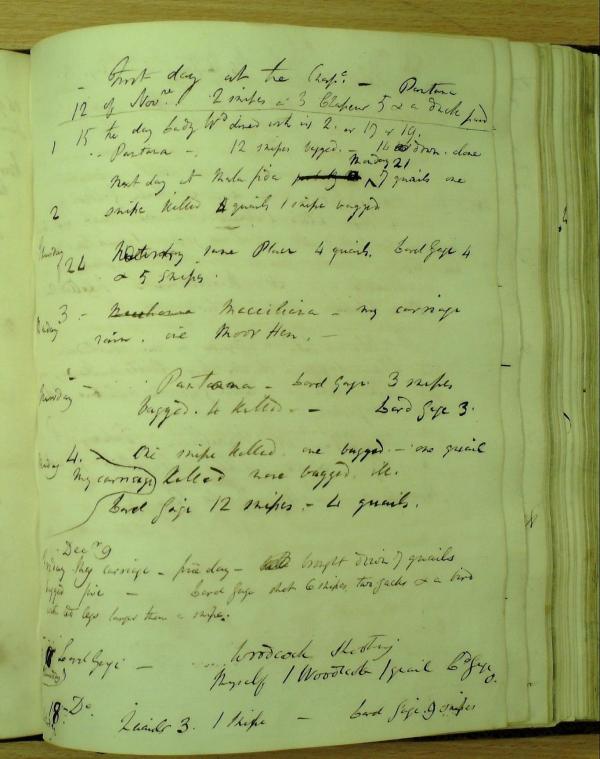 - First day at the Chapˡ. - Pantana
12 of Novʳᵉ. 2 snipes 3 5 & a duck
1 15 the day Lady Wᵈ dined with us 2. or 17 or 19.
Pantana -. 12 snipes bagged. - 14 down. alone
Monday 21
Next day at Mala fida 7 quails one
2 snipe killed 4 quails 1 snipe bagged
24 same Place 4 quails. Lord Gage 4
& 5 snipes.
3 - Macciliana - my carriage
rain. one Moor Hen. -
Pantana - Lord Gage 3 snipes
bagged. 4 killed. - Lord Gage 3.
4. One snipe killed one bagged - one quail
My carriage killed none bagged.
Lord Gage 12 snipes - 4 quails.
Decʳ 9
Friday My carriage - fine day - brought down 7 quails
bagged five - Lord Gage shot 6 snipes, two jacks & a bird
with legs longer than a snipe.
Woodcock shooting
Lord Gage - Myself 1 Woodcock 1 quail Lᵈ Gage 0.
18 - Dᵒ
Quails 3. 1 snipe - Lord Gage 9 snipes